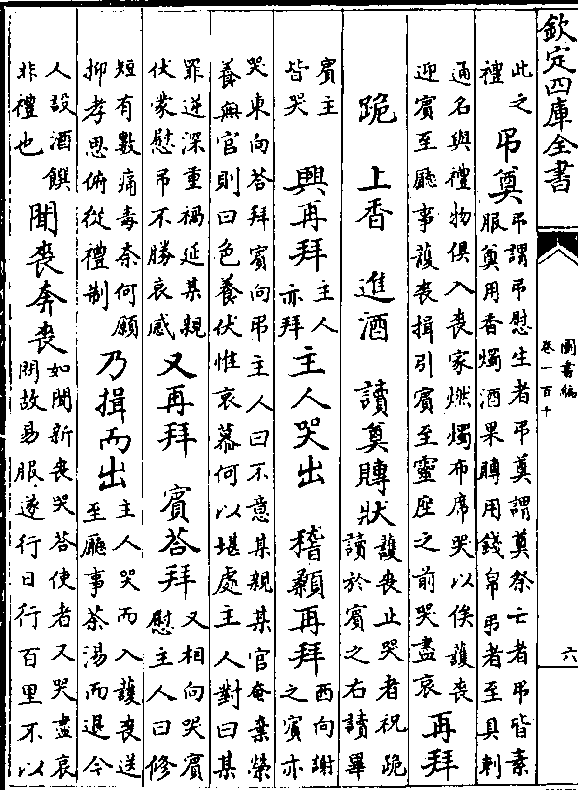 欽定四庫全書
圖書編
卷一百十
六
此之
禮
弔奠
弔謂弔慰生者弔奠謂奠祭亡者弔皆素
服奠用香燭酒果賻用錢帛弔者至具刺
通名與禮物俱入喪家燃燭布席哭以俟護喪
迎賓至廳事護喪揖引賓至靈座之前哭盡哀
再拜
跪 上香 進酒 讀奠賻狀
護喪止哭者祝跪
讀於賓之右讀畢
賓主
皆哭
興再拜
主人
亦拜
主人哭出 稽顙再拜
西向謝
之賓亦
哭東向答拜賓向弔主人曰不意某親某官奄棄榮
養無官則曰色養伏惟哀慕何以堪處主人對曰某
罪逆深重禍延某親
伏蒙慰弔不勝哀感
又再拜 賓答拜
又相向哭賓
慰主人曰修
短有數痛毒奈何願
抑孝思俯從禮制
乃揖而出
主人哭而入護喪送
至廳事茶湯而退今
人設酒饌
非禮也
聞喪奔喪
如聞新喪哭答使者又哭盡哀
問故易服遂行日行百里不以